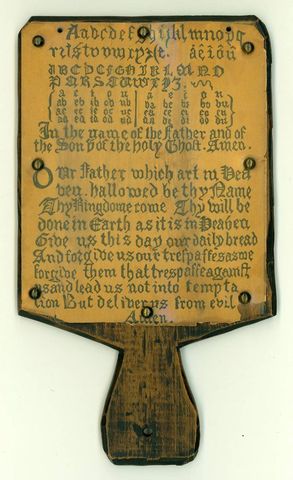 Aabcdefghijklmnopq
rſstuvwxyz&. âêîôû
ABCDEFGHIJKLMNO
PQRSTUVWXYZ.
a e i o u | a e i o u
ab eb ib ob ub | ba be bi bo bu
ac ec ic oc uc | ca ce ci co cu
ad ed id od ud | da de di do du
In the name of the Father and of
the Son & of the holy Ghost. Amen.
Our Father which art in Hea
ven, hallowed be thy Name
Thy Kingdome come Thy will be
done in Earth as it is in Heaven
Give us this day our daily bread
And forgive us our treſpaſſes as we
forgive them that treſpaſſe againſt
us and lead us not into tempta
tion But deliver us from evil
Amen.